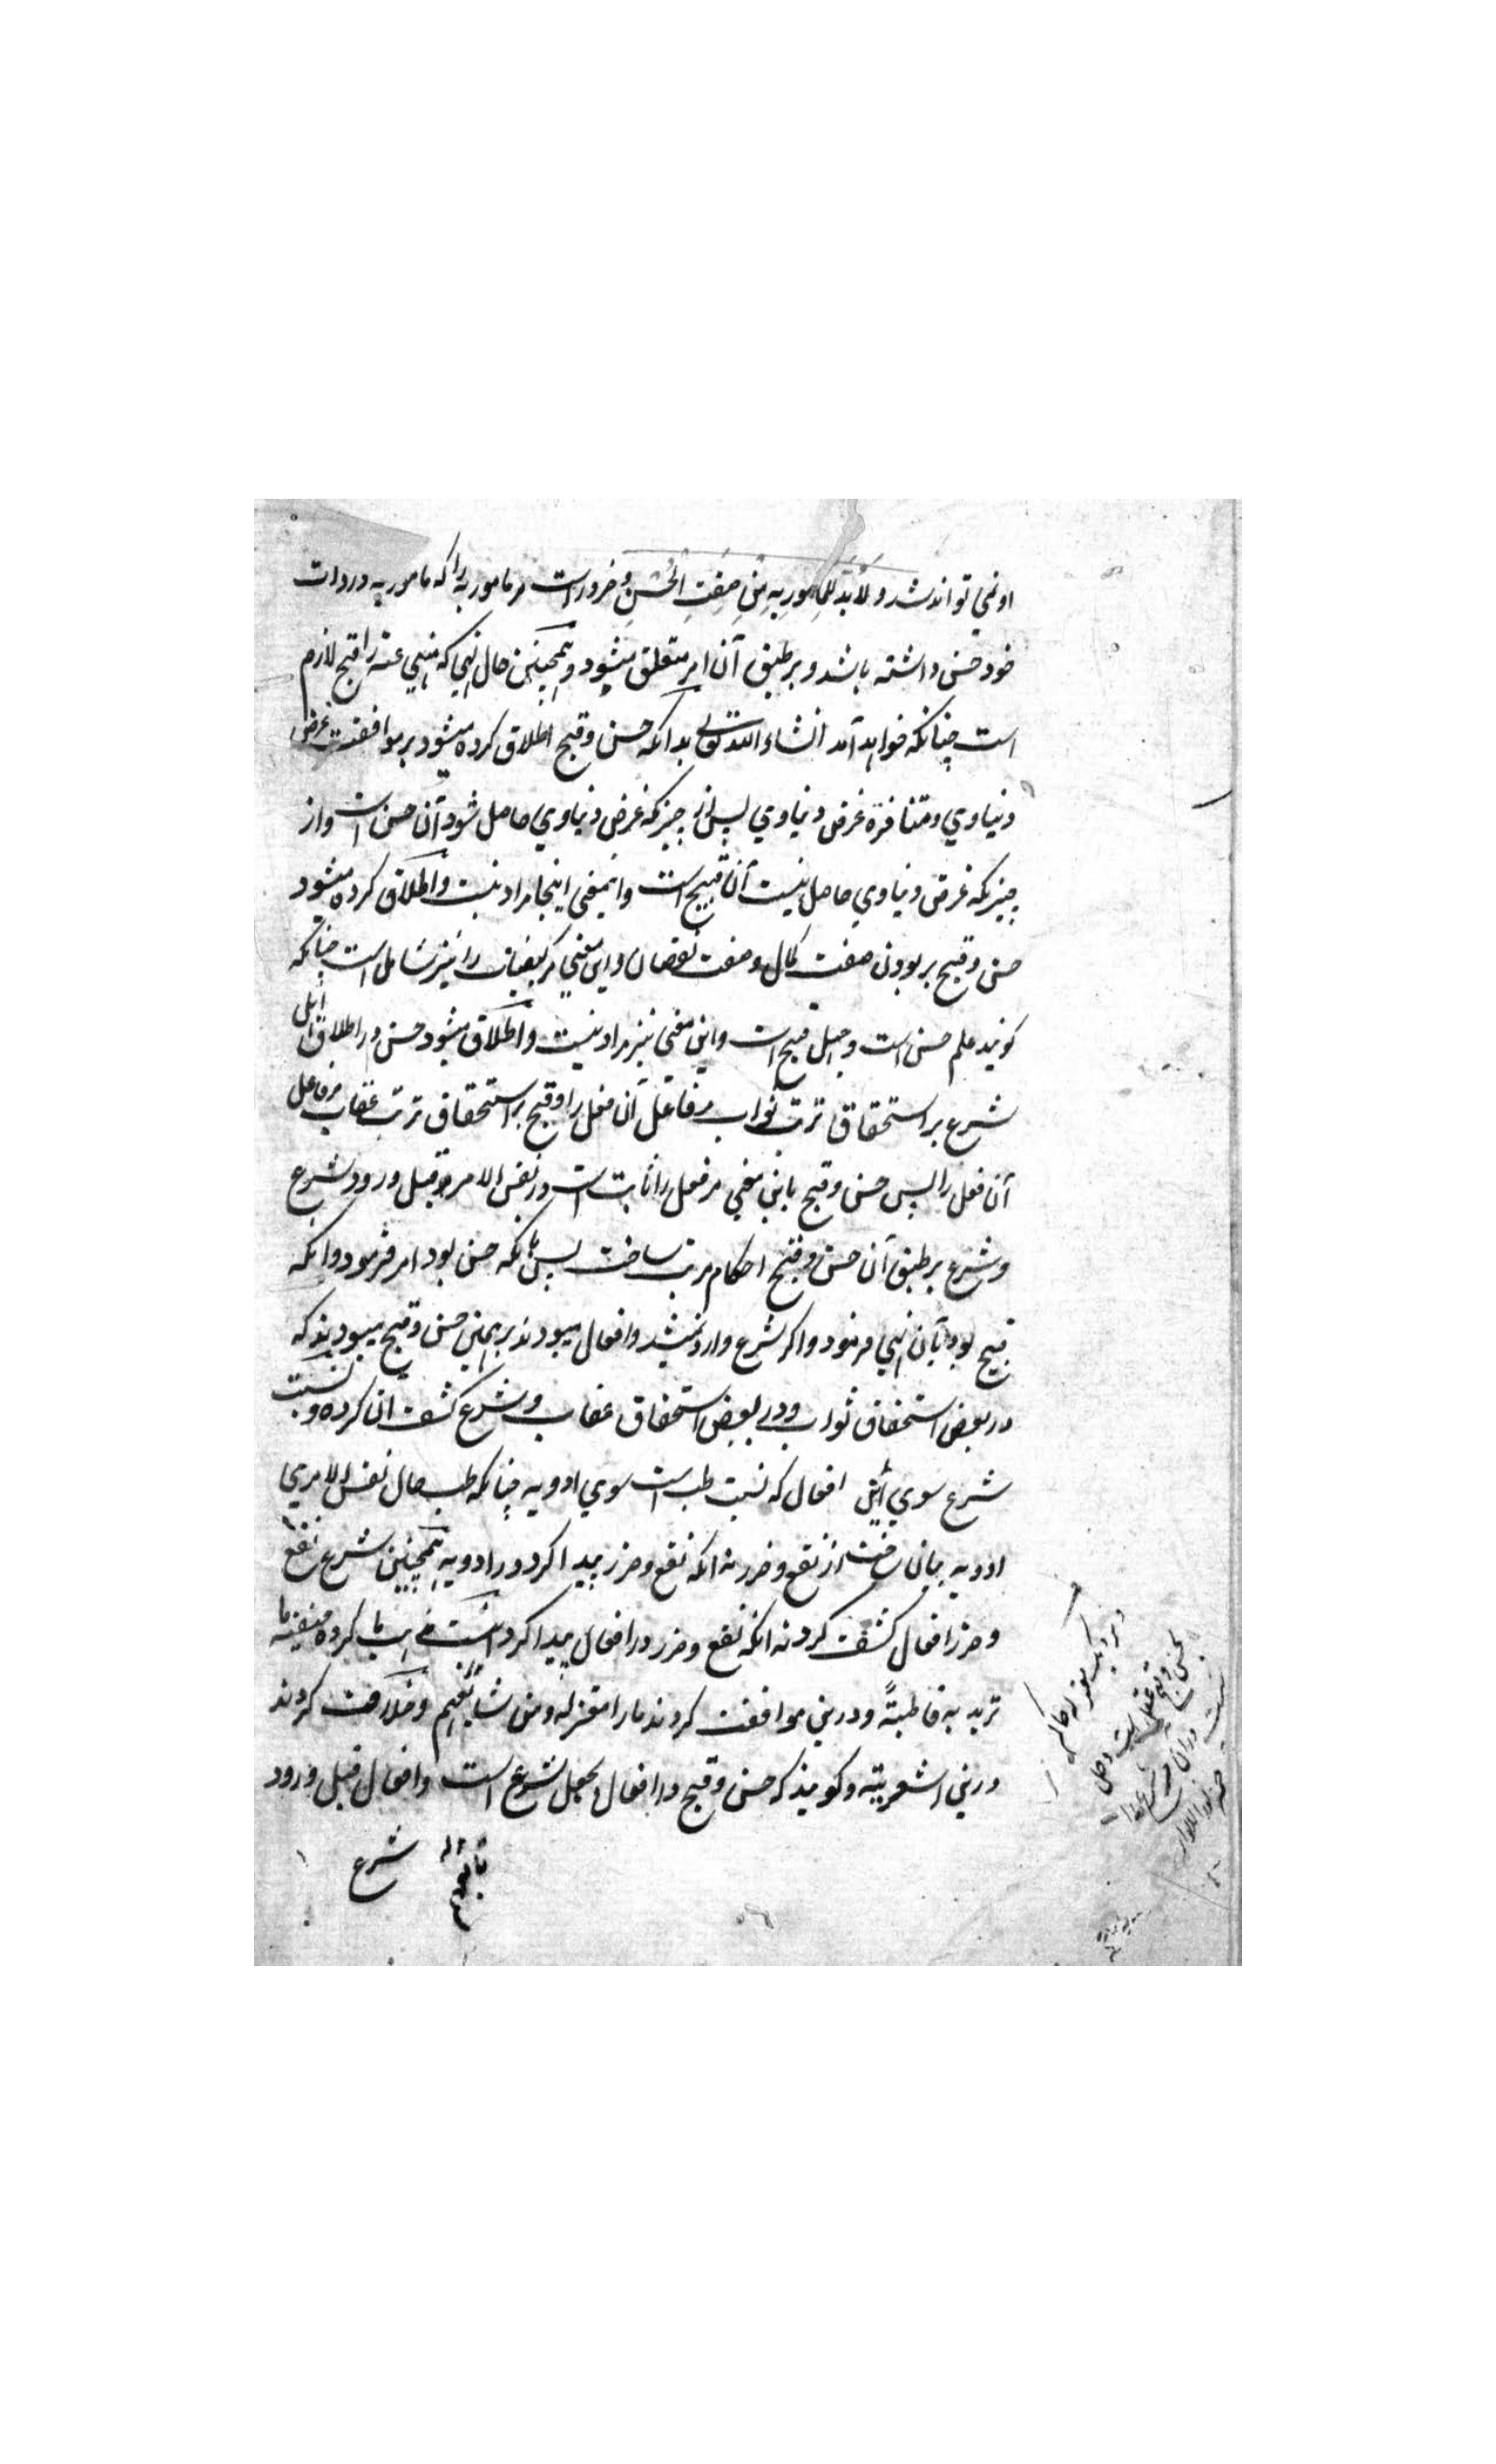 او نمي تواند شد و لَابُدَّ لِلْمامورِبِهِ مِنْ صِفَتِ الْحُسْنِ و ضرور است مر مامور به را که مامور به در ذات
خود حسن داشته باشد و بر طبق آن امر متعلق میشود و همچنین حال نهي که منهي عنه را قبح لازم
است چنانکه خواهد آمد انشاء الله تعالی بدانکه حسن و قبح اطلاق کرده میشود بر موافقت غرض
دنیاوي و متنافره غرض دنیاوي پس از چیزکه غرض دنیاوي حاصل شود آن حسن است و از
چیزیکه غرض دنیاوي حاصل نیست آن قبیح است و اینمعنی اینجا مراد نیست و اطلاق کرده میشود
حسن و قبح بر بودن صفت کمال و صفت نقصان و این معني مر کیفیات را نیز شامل است چنانکه
کویند علم حسن است و جهل قبیح است و این معنی نیز مراد نیست و اطلاق میشود حسن در اطلاق اهل
شرع بر استحقاق ترتب ثواب مر فاعل آن فعل را و قبح بر استحقاق ترتب عقاب مر فاعل
آن فعل را پس حسن و قبح باین معني مر فعل را ثابت است در نفس الامر قبل ورود شرع
و شرع بر طبق آن حسن و قبح احکام مرتب ساخت پس بانکه حسن بود امر فرمود وانکه
قبیح بود بآن نهي فرمود واکر شرع وارد نمیشد وافعال میبودند بر همین حسن و قبح میبودند که
در بعض استحقاق ثواب و در بعض استحقاق عقاب و شرع کشف ان کرده و نسبت
شرع سوي این افعال که نسبت طب است سوي ادویه چنانکه طب حال نفس الامري
ادویه بیان ساخت از نفع و ضرر نه انکه نفع و ضرر پیدا کرد در ادویه همچنین شرع نفع
و ضرر افعال کشف کرد نه انکه نفع و ضرر در افعال پیدا کرد اینست مذهب ما کروه حنفیه ما
تریدیه قاطبتهً و درین موافقت کردند مارا معتزله و من شایعهم و خلافت کردند
درین اشعریته و کویند که حسن و قبح در افعال بجعل شرع است وافعال قبل ورود
شرع